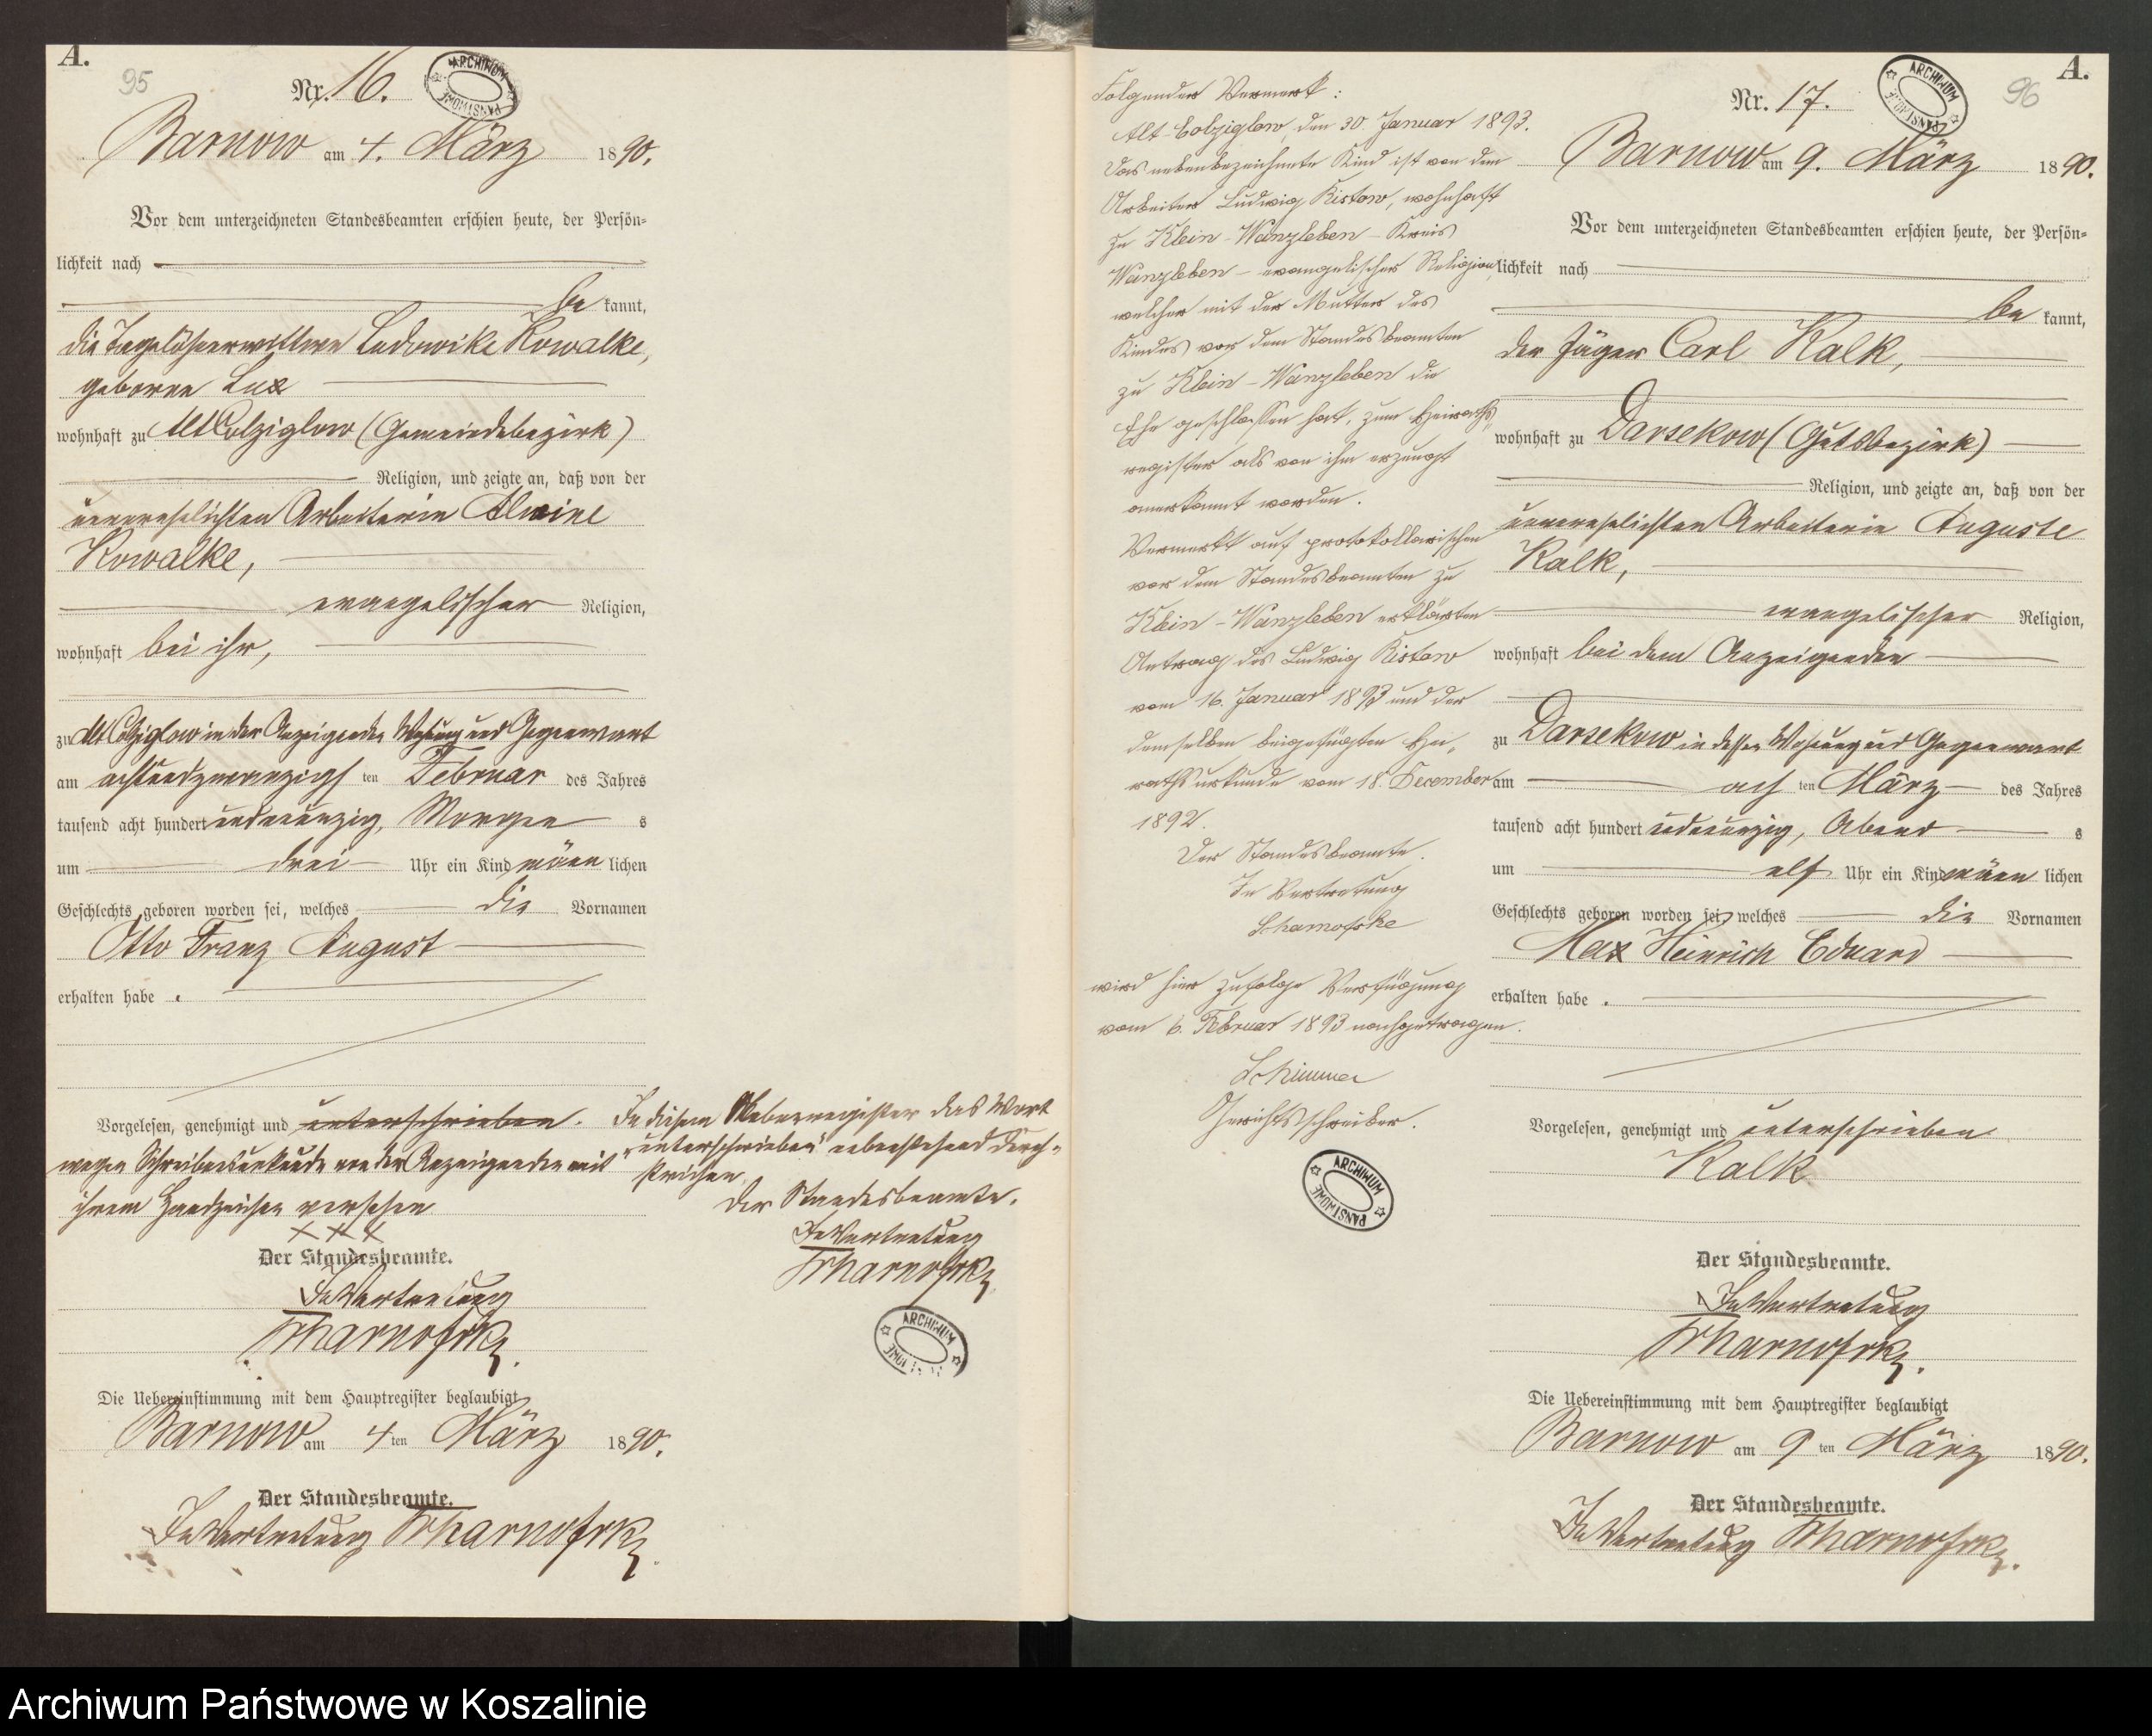 A.
95
Nr. 16.
ARCHIWUM PAŃSTWOWE
Barnow am 4. März 1890.
Vor dem unterzeichneten Standesbeamten erschien heute, der Persön=
lichkeit nach
be kannt,
die Tagelöhnerwittwe Ludowike Kowalke,
geborne Lux
wohnhaft zu Alt Colziglow (Gemeindebezirk)
Religion, und zeigte an, daß von der
unverehelichten Arbeiterin Alwine
Kowalke,
evangelischer Religion,
wohnhaft bei ihr,
zu Alt Colziglow in der Anzeigenden Wohnung und Gegenwart
am achtundzwanzigs ten Februar des Jahres
tausend acht hundert undneunzig, Morgen s
um drei Uhr ein Kind männ lichen
Geschlechts geboren worden sei, welches die Vornamen
Otto Franz August
erhalten habe.
Vorgelesen, genehmigt und unterschrieben.
wegen Schreibensunkunde von der Anzeigenden mit
ihrem Handzeichen versehen
+++
Der Standesbeamte.
In Vertretung
Scharnofske
Die Uebereinstimmung mit dem Hauptregister beglaubigt
Barnow am 4 ten März 1890.
Der Standesbeamte.
In Vertretung Scharnofske
In diesem Nebenregister das Wort
"unterschrieben" nebenstehend durch=
strichen.
Der Standesbeamte.
In Vertretung
Scharnofske
ARCHIWUM
Folgender Vermerk:
Alt-Colziglow, den 30. Januar 1893.
Das nebenbezeichnete Kind ist von dem
Arbeiter Ludwig Kistow, wohnhaft
zu Klein-Wanzleben - Kreis
Wanzleben - evangelischer Religion,
welcher mit der Mutter des
Kindes vor dem Standesbeamten
zu Klein-Wanzleben die
Ehe geschlossen hat, zum Heiraths„
register als von ihm erzeugt
anerkannt worden.
Vermerkt auf protokollarischen
vor dem Standesbeamten zu
Klein-Wanzleben erklärten
Antrag des Ludwig Kistow
vom 16. Januar 1893 und der
demselben beigefügten Hei„
rathsurkunde vom 18. December
1892.
Der Standesbeamte.
In Vertretung
Scharnofske
wird hier zufolge Verfügung
vom 6. Februar 1893 nachgetragen.
Schimmer
Gerichtsschreiber.
ARCHIWUM PAŃSTWOWE
A.
96
Nr. 17.
ARCHIWUM PAŃSTWOWE
Barnow am 9. März 1890.
Vor dem unterzeichneten Standesbeamten erschien heute, der Persön=
lichkeit nach
be kannt,
der Jäger Carl Kalk,
wohnhaft zu Darsekow (Gutsbezirk)
Religion, und zeigte an, daß von der
unverehelichten Arbeiterin Auguste
Kalk,
evangelischer Religion,
wohnhaft bei dem Anzeigenden
zu Darsekow in dessen Wohnung und Gegenwart
am ach ten März des Jahres
tausend acht hundert undneunzig, Abend s
um elf Uhr ein Kind männ lichen
Geschlechts geboren worden sei, welches die Vornamen
Max Heinrich Eduard
erhalten habe.
Vorgelesen, genehmigt und unterschrieben
Kalk
Der Standesbeamte.
In Vertretung
Scharnofske.
Die Uebereinstimmung mit dem Hauptregister beglaubigt
Barnow am 9 ten März 1890.
Der Standesbeamte.
In Vertretung Scharnofske.
Archiwum Państwowe w Koszalinie